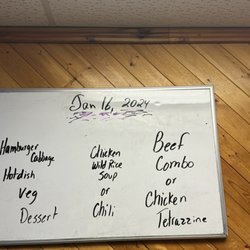 Jan 16, 2024
Hamburger
Cabbage
Hotdish
Veg
Dessert
Chicken
Wild Rice
Soup
or
Chili
Beef
Combo
or
Chicken
Tetrazzine